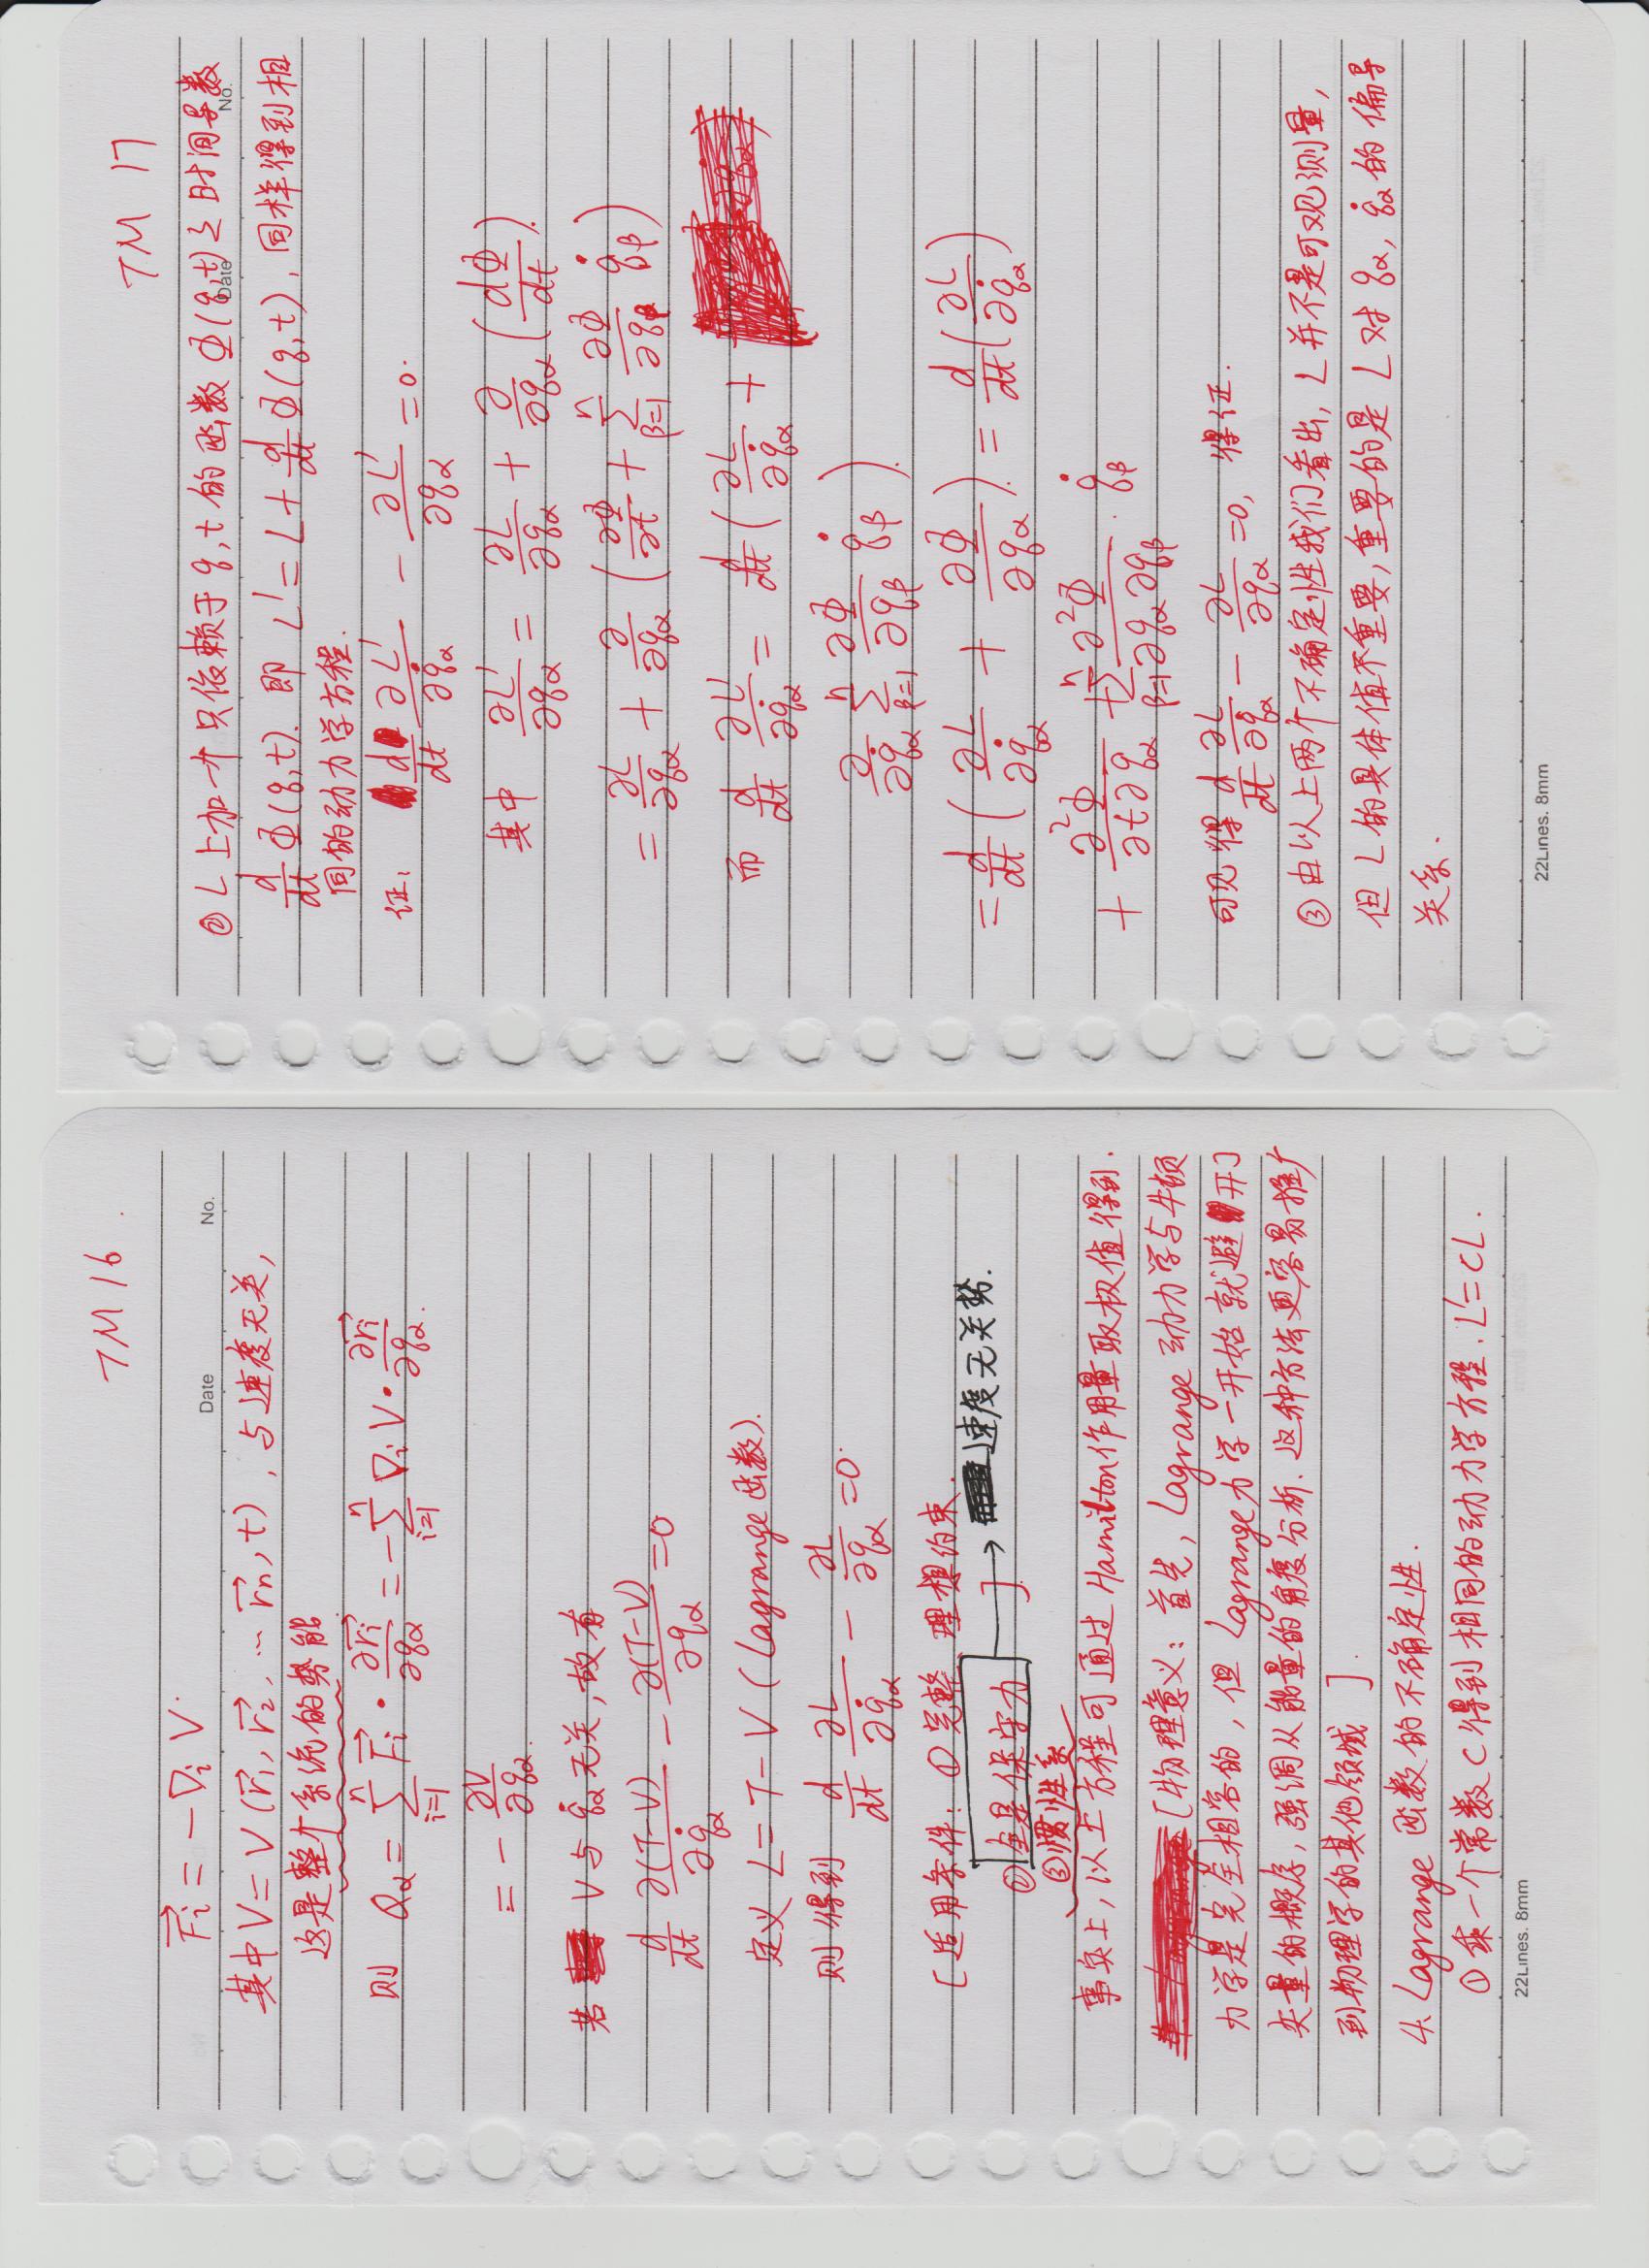 TM 16.
Date No.
$\vec{F_i} = -\nabla_i V.$
其中 $V = V(\vec{r_1}, \vec{r_2}, \cdots \vec{r_n}, t)$, 与速度无关,
这是整个系统的势能
则 $Q_\alpha = \sum_{i=1}^{n} \vec{F_i} \cdot \frac{\partial \vec{r_i}}{\partial q_\alpha} = -\sum_{i=1}^{n} \nabla_i V \cdot \frac{\partial \vec{r_i}}{\partial q_\alpha}.$
$= -\frac{\partial V}{\partial q_\alpha}.$
若 V 与 $\dot{q}_\alpha$ 无关, 故有
$\frac{d}{dt} \frac{\partial (T-V)}{\partial \dot{q}_\alpha} - \frac{\partial (T-V)}{\partial q_\alpha} = 0$
定义 L = T - V (Lagrange 函数).
则得到 $\frac{d}{dt} \frac{\partial L}{\partial \dot{q}_\alpha} - \frac{\partial L}{\partial q_\alpha} = 0.$
[适用条件: ① 完整、理想约束.
② 全是保守力 ] → 速度无关势.
③ 惯性系
事实上, 以上方程可通过 Hamilton 作用量取极值得到.
[物理意义: 首先, Lagrange 动力学与牛顿
力学是完全相容的, 但 Lagrange 力学一开始就避开]
矢量的概念, 强调从能量的角度分析. 这种方法更容易推广
到物理学的其他领域 ].
4. Lagrange 函数的不确定性.
① 乘一个常数 C 得到相同的动力学方程. L' = CL.
22Lines. 8mm
TM 17
Date No.
② L 上加一个只依赖于 q, t 的函数 Φ(q,t) 之时间导数
$\frac{d}{dt} Φ(q,t)$. 即 $L' = L + \frac{d}{dt} Φ(q,t)$, 同样得到相
同的动力学方程.
证: $\frac{d}{dt} \frac{\partial L'}{\partial \dot{q}_\alpha} - \frac{\partial L'}{\partial q_\alpha} = 0.$
其中 $\frac{\partial L'}{\partial q_\alpha} = \frac{\partial L}{\partial q_\alpha} + \frac{\partial}{\partial q_\alpha} \left( \frac{dΦ}{dt} \right).$
$= \frac{\partial L}{\partial q_\alpha} + \frac{\partial}{\partial q_\alpha} \left( \frac{\partial Φ}{\partial t} + \sum_{\beta=1}^{n} \frac{\partial Φ}{\partial q_\beta} \dot{q}_\beta \right)$
而 $\frac{d}{dt} \frac{\partial L'}{\partial \dot{q}_\alpha} = \frac{d}{dt} ( \frac{\partial L}{\partial \dot{q}_\alpha} +$
$\frac{\partial}{\partial \dot{q}_\alpha} \sum_{\beta=1}^{n} \frac{\partial Φ}{\partial q_\beta} \dot{q}_\beta ).$
$= \frac{d}{dt} \left( \frac{\partial L}{\partial \dot{q}_\alpha} + \frac{\partial Φ}{\partial q_\alpha} \right). = \frac{d}{dt} \left( \frac{\partial L}{\partial \dot{q}_\alpha} \right)$
$+ \frac{\partial^2 Φ}{\partial t \partial q_\alpha} + \sum_{\beta=1}^{n} \frac{\partial^2 Φ}{\partial q_\alpha \partial q_\beta} \cdot \dot{q}_\beta$
可见得 $\frac{d}{dt} \frac{\partial L}{\partial \dot{q}_\alpha} - \frac{\partial L}{\partial q_\alpha} = 0$, 得证.
③ 由以上两个不确定性我们看出, L 并不是可观测量,
但 L 的具体值不重要, 重要的是 L 对 $q_\alpha$, $\dot{q}_\alpha$ 的偏导
关系.
22Lines. 8mm